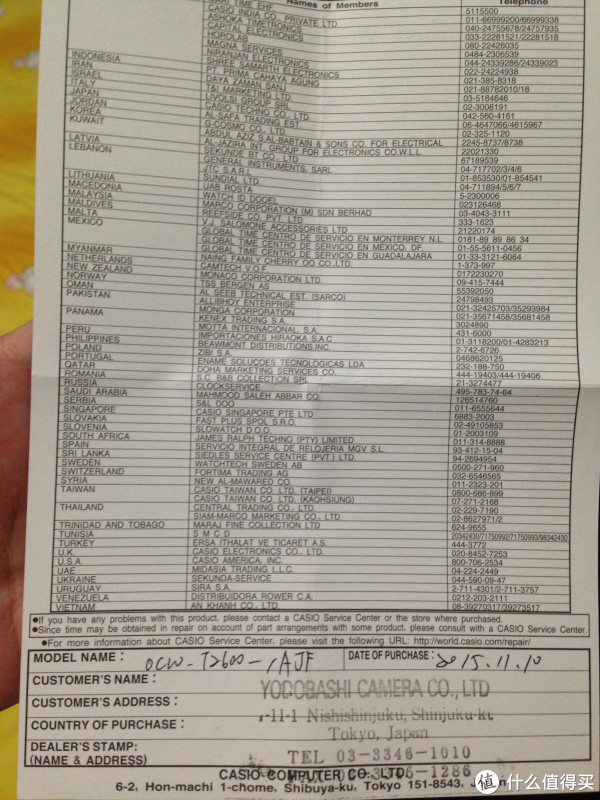 Names of Members Telephone
TIME EHF. 5115500
CASIO INDIA CO. PRIVATE LTD. 011-66999200/66999338
ASHOKA TIMETRONICS 040-24755678/24757935
CAPITAL ELECTRONICS 033-22281521/22281518
HOROLAB 080-22426035
MAGNA SERVICES 0484-2306539
NIRANJAN ELECTRONICS 044-24339286/24339023
SHREE SAMARTH ELECTRONICS 022-24224938
INDONESIA PT. PRIMA CAHAYA AGUNG 021-385-8318
IRAN DAYA ZAMAN SANJ 021-88782010/18
ISRAEL T&I MARKETING LTD. 03-5184646
ITALY LIVOLSI GROUP SRL 02-3008191
JAPAN CASIO TECHNO CO., LTD. 042-560-4161
JORDAN AL-SAFA TRADING EST. 06-4647066/4615967
KOREA G-COSMO CO., LTD. 02-325-1120
KUWAIT ABDUL AZIZ S.AL-BABTAIN & SONS CO. FOR ELECTRICAL 2245-8737/8738
AL-JAZIRA INT. GROUP FOR ELECTRONICS CO.W.L.L 22021330
LATVIA SEKUNDE BT CO., LTD 67189539
LEBANON GENERAL INSTRUMENTS, SARL 04-717702/3/4/6
JTC S.A.R.L 01-853530/01-854541
SUNDIAL LTD. 04-711894/5/6/7
LITHUANIA UAB ROSTA 5-2300006
MACEDONIA WATCH ID DOOEL 023126468
MALAYSIA MARCO CORPORATION (M) SDN BERHAD 03-4043-3111
MALDIVES REEFSIDE CO. PVT. LTD 333-1623
MALTA V.J. SALOMONE ACCESSORIES LTD 21220174
MEXICO GLOBAL TIME CENTRO DE SERVICIO EN MONTERREY N.L 0181-89 89 86 34
GLOBAL TIME CENTRO DE SERVICIO EN MEXICO, DF 01-55-5611-0456
GLOBAL TIME CENTRO DE SERVICIO EN GUADALAJARA 01-33-3121-6064
MYANMAR NAING FAMILY CHERRY OO CO.,LTD. 1-373-997
NETHERLANDS CAMTECH V.O.F. 0172230270
NEW ZEALAND MONACO CORPORATION LTD. 09-415-7444
NORWAY TSS BERGEN AS 55392050
OMAN AL SEEB TECHNICAL EST. (SARCO) 24798493
PAKISTAN ALLIBHOY ENTERPRISE 021-32425703/35293984
MONGA CORPORATION 021-35671458/35681458
PANAMA KENEX TRADING S.A. 3024890
MOTTA INTERNACIONAL, S.A. 431-6000
PERU IMPORTACIONES HIRAOKA S.A.C 01-3118200/01-4283213
PHILIPPINES BEAWMONT DISTRIBUTIONS.INC. 2-742-6726
POLAND ZIBI S.A. 0468620125
PORTUGAL ENAME SOLUCOES TECNOLOGICAS LDA 232-188-750
QATAR DOHA MARKETING SERVICES CO. 444-19403/444-19406
ROMANIA S.C. B&B COLLECTION SRL 21-3274477
RUSSIA CLOCKSERVICE 495-783-74-64
SAUDI ARABIA MAHMOOD SALEH ABBAR CO. 126514760
SERBIA S&L DOO 011-6555644
SINGAPORE CASIO SINGAPORE PTE LTD 6883-2003
SLOVAKIA FAST PLUS SPOL S.R.O. 02-49105853
SLOVENIA SLOWATCH D.O.O. 01-2003109
SOUTH AFRICA JAMES RALPH TECHNO (PTY) LIMITED 011-314-8888
SPAIN SERVICIO INTEGRAL DE RELOJERIA MGV S.L 93-412-15-04
SRI LANKA SIEDLES SERVICE CENTRE (PVT.) LTD. 94-2694954
SWEDEN WATCHTECH SWEDEN AB 0500-271-960
SWITZERLAND FORTIMA TRADING AG 032-6546565
SYRIA NEW AL-MAWARED CO. 011-2323-201
TAIWAN CASIO TAIWAN CO. LTD. (TAIPEI) 0800-686-899
CASIO TAIWAN CO. LTD. (KAOHSIUNG) 07-271-2168
THAILAND CENTRAL TRADING CO., LTD. 02-229-7190
SIAM-MARCO MARKETING CO., LTD. 02-8627971/2
TRINIDAD AND TOBAGO MARAJ FINE COLLECTION LTD 624-9655
TUNISIA S M C D 20342430/71750992/71750993/98342430
TURKEY ERSA ITHALAT VE TICARET A.S. 444-3772
U.K. CASIO ELECTRONICS CO., LTD. 020-8452-7253
U.S.A. CASIO AMERICA, INC. 800-706-2534
UAE MIDASIA TRADING L.L.C. 04-224-2449
UKRAINE SEKUNDA-SERVICE 044-590-09-47
URUGUAY SIRA S.A. 2-711-4301/2-711-3757
VENEZUELA DISTRIBUIDORA ROWER C.A. 0212-203-2111
VIETNAM AN KHANH CO., LTD. 08-39270317/39273517
●If you have any problems with this product, please contact a CASIO Service Center or the store where purchased.
●Since time may be obtained in repair on account of part arrangements with some product, please consult with a CASIO Service Center.
●For more information about CASIO Service Center, please visit the following URL: http://world.casio.com/repair/
MODEL NAME: OCW-T2600-1AJF DATE OF PURCHASE: 2015.11.10
CUSTOMER'S NAME:
YODOBASHI CAMERA CO., LTD
CUSTOMER'S ADDRESS:
1-11-1 Nishishinjuku, Shinjuku-ku
COUNTRY OF PURCHASE:
Tokyo, Japan
DEALER'S STAMP:
(NAME & ADDRESS)
TEL 03-3346-1010
CASIO COMPUTER CO., LTD.
1286
6-2, Hon-machi 1-chome, Shibuya-ku, Tokyo 151-8543, Japan
值 什么值得买